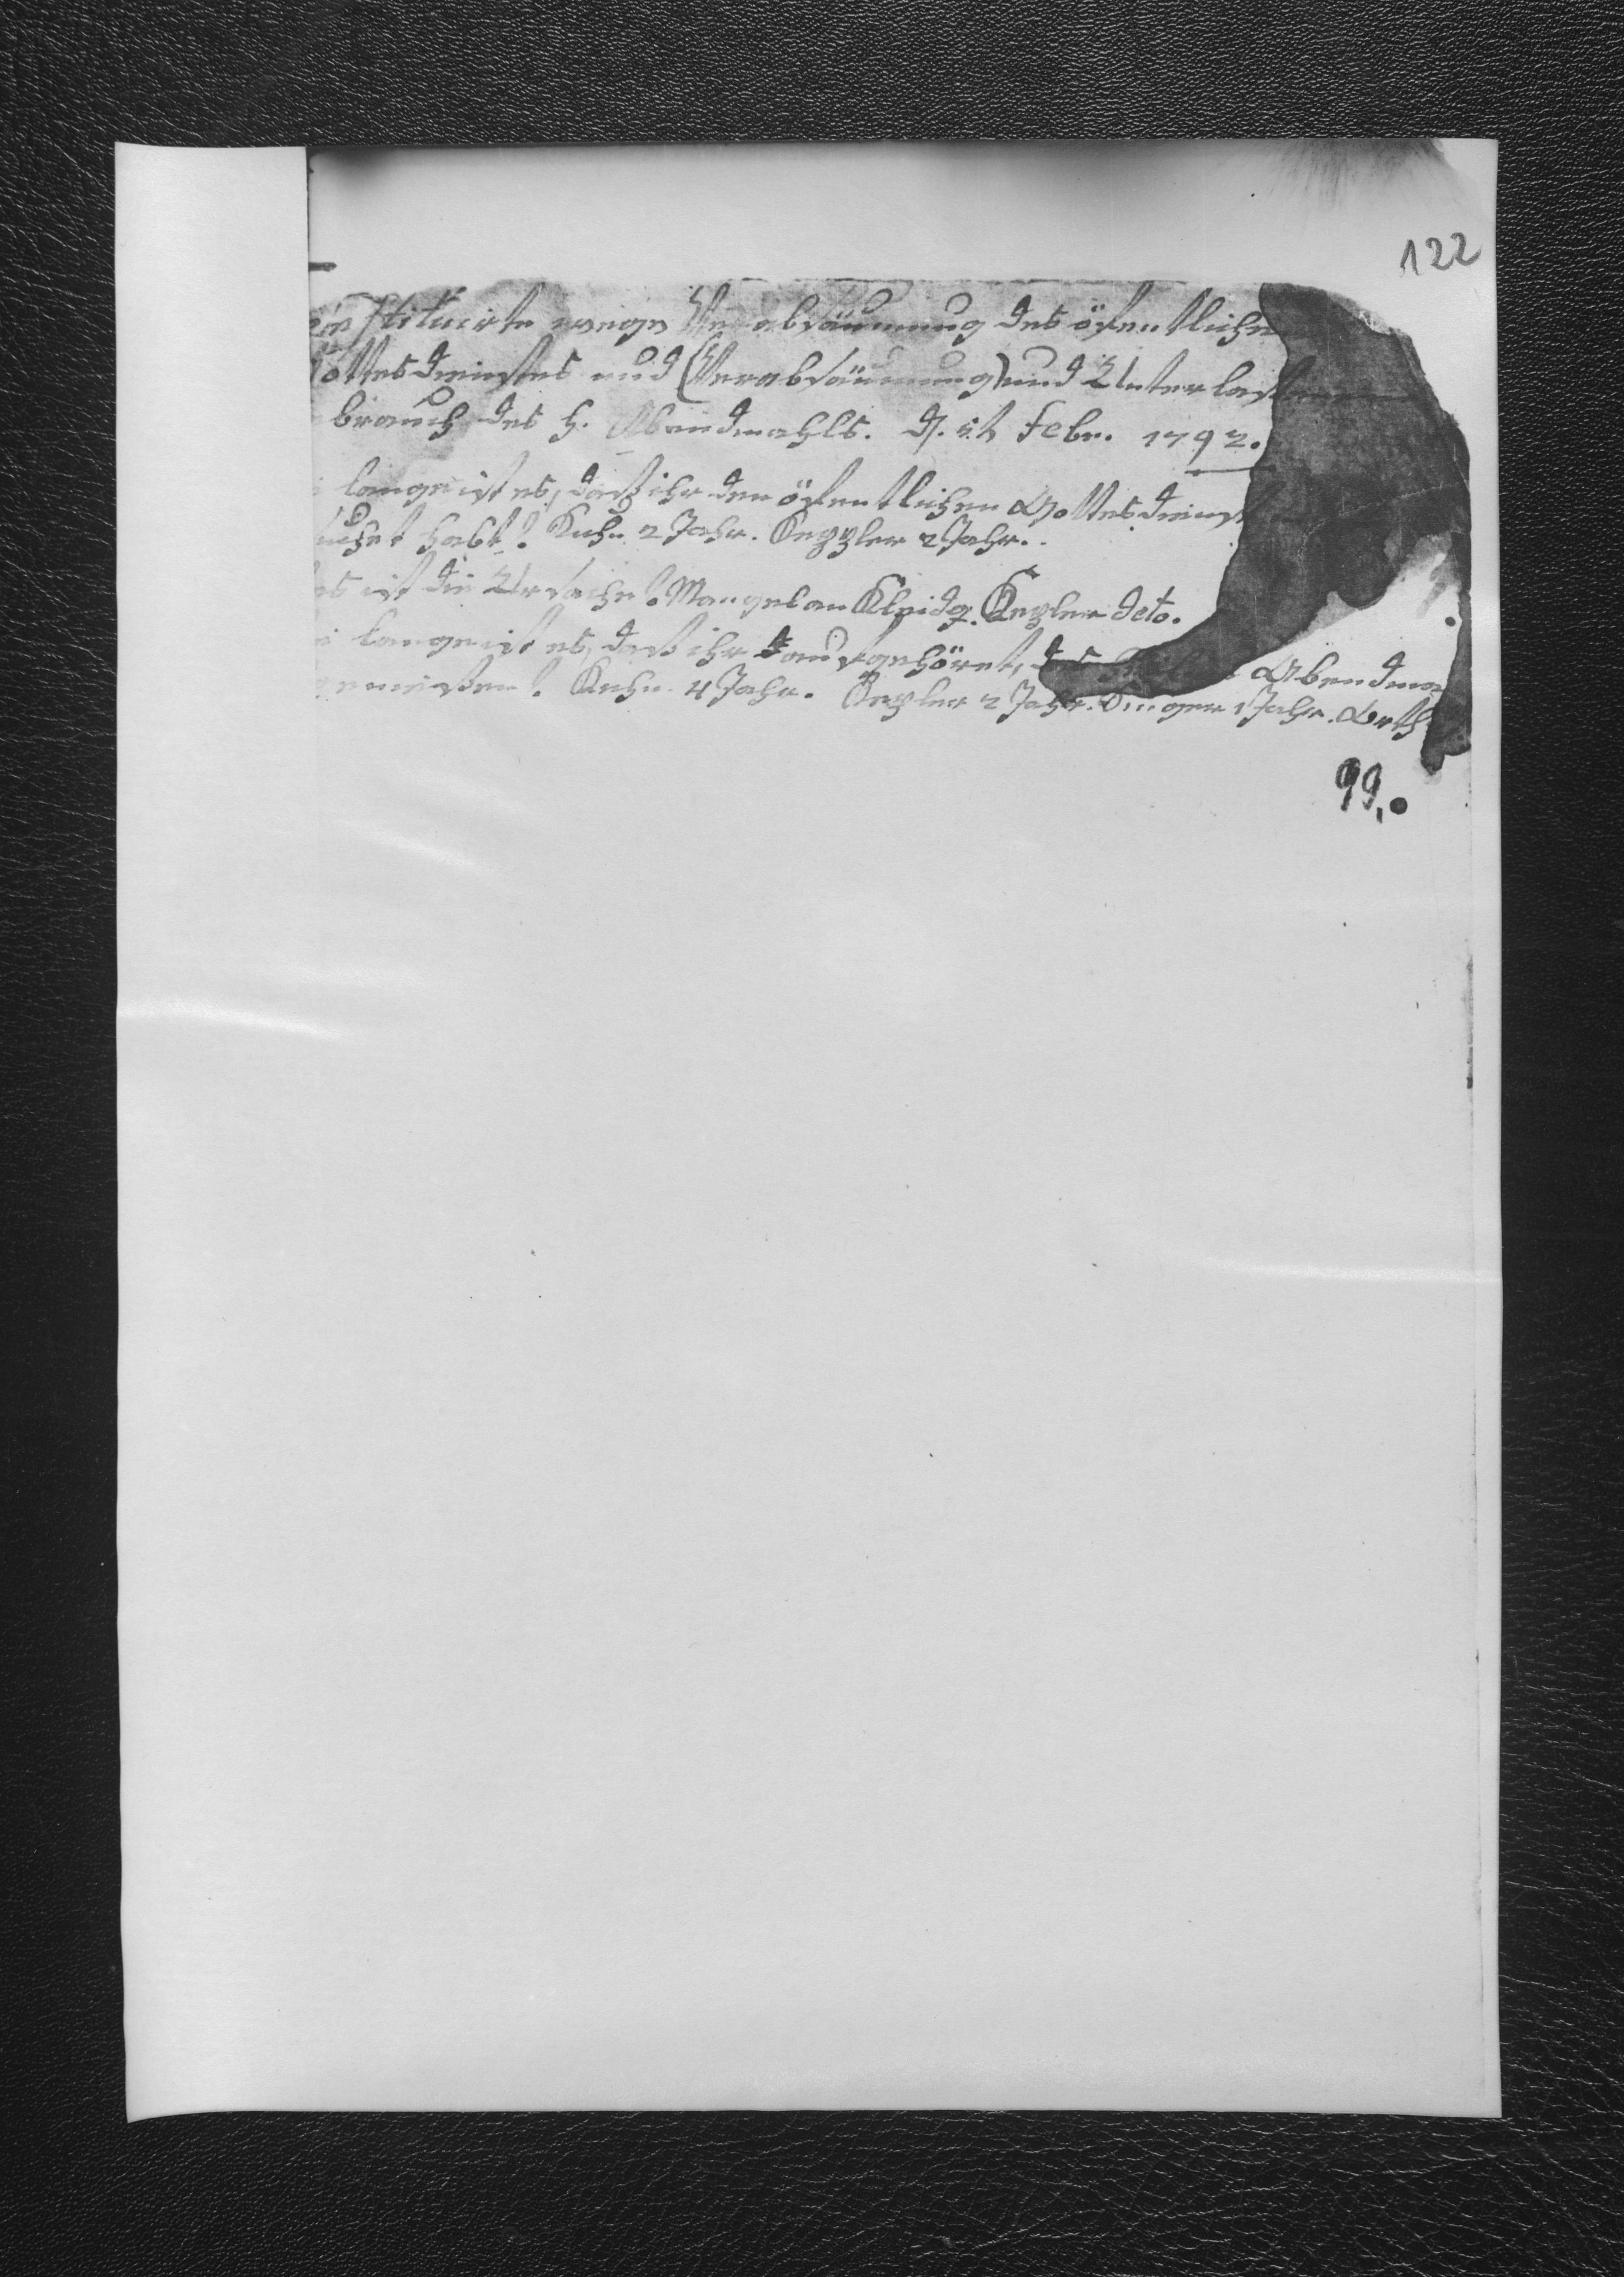 122
constituirte wegen Verabsäumung des öfentlichen
Gottesdienstes und (Verabsäumung) und Unterlassen
brauch des H. Abendmahls. d. 5t Febr. 1792.
lange ist es, daß ihr den öfentlichen Gottesdienst
suchet habt? Kuhn 2 Jahr. Kezzler 2 Jahr.
as ist die Ursache? Mangel an Kleidg. Kezler deto.
lange ist es, daß ihr aufgehöret, Abendma
geniesen? Kuhn 4 Jahr. Kezler 2 Jahr. 1 Jahr.
99.